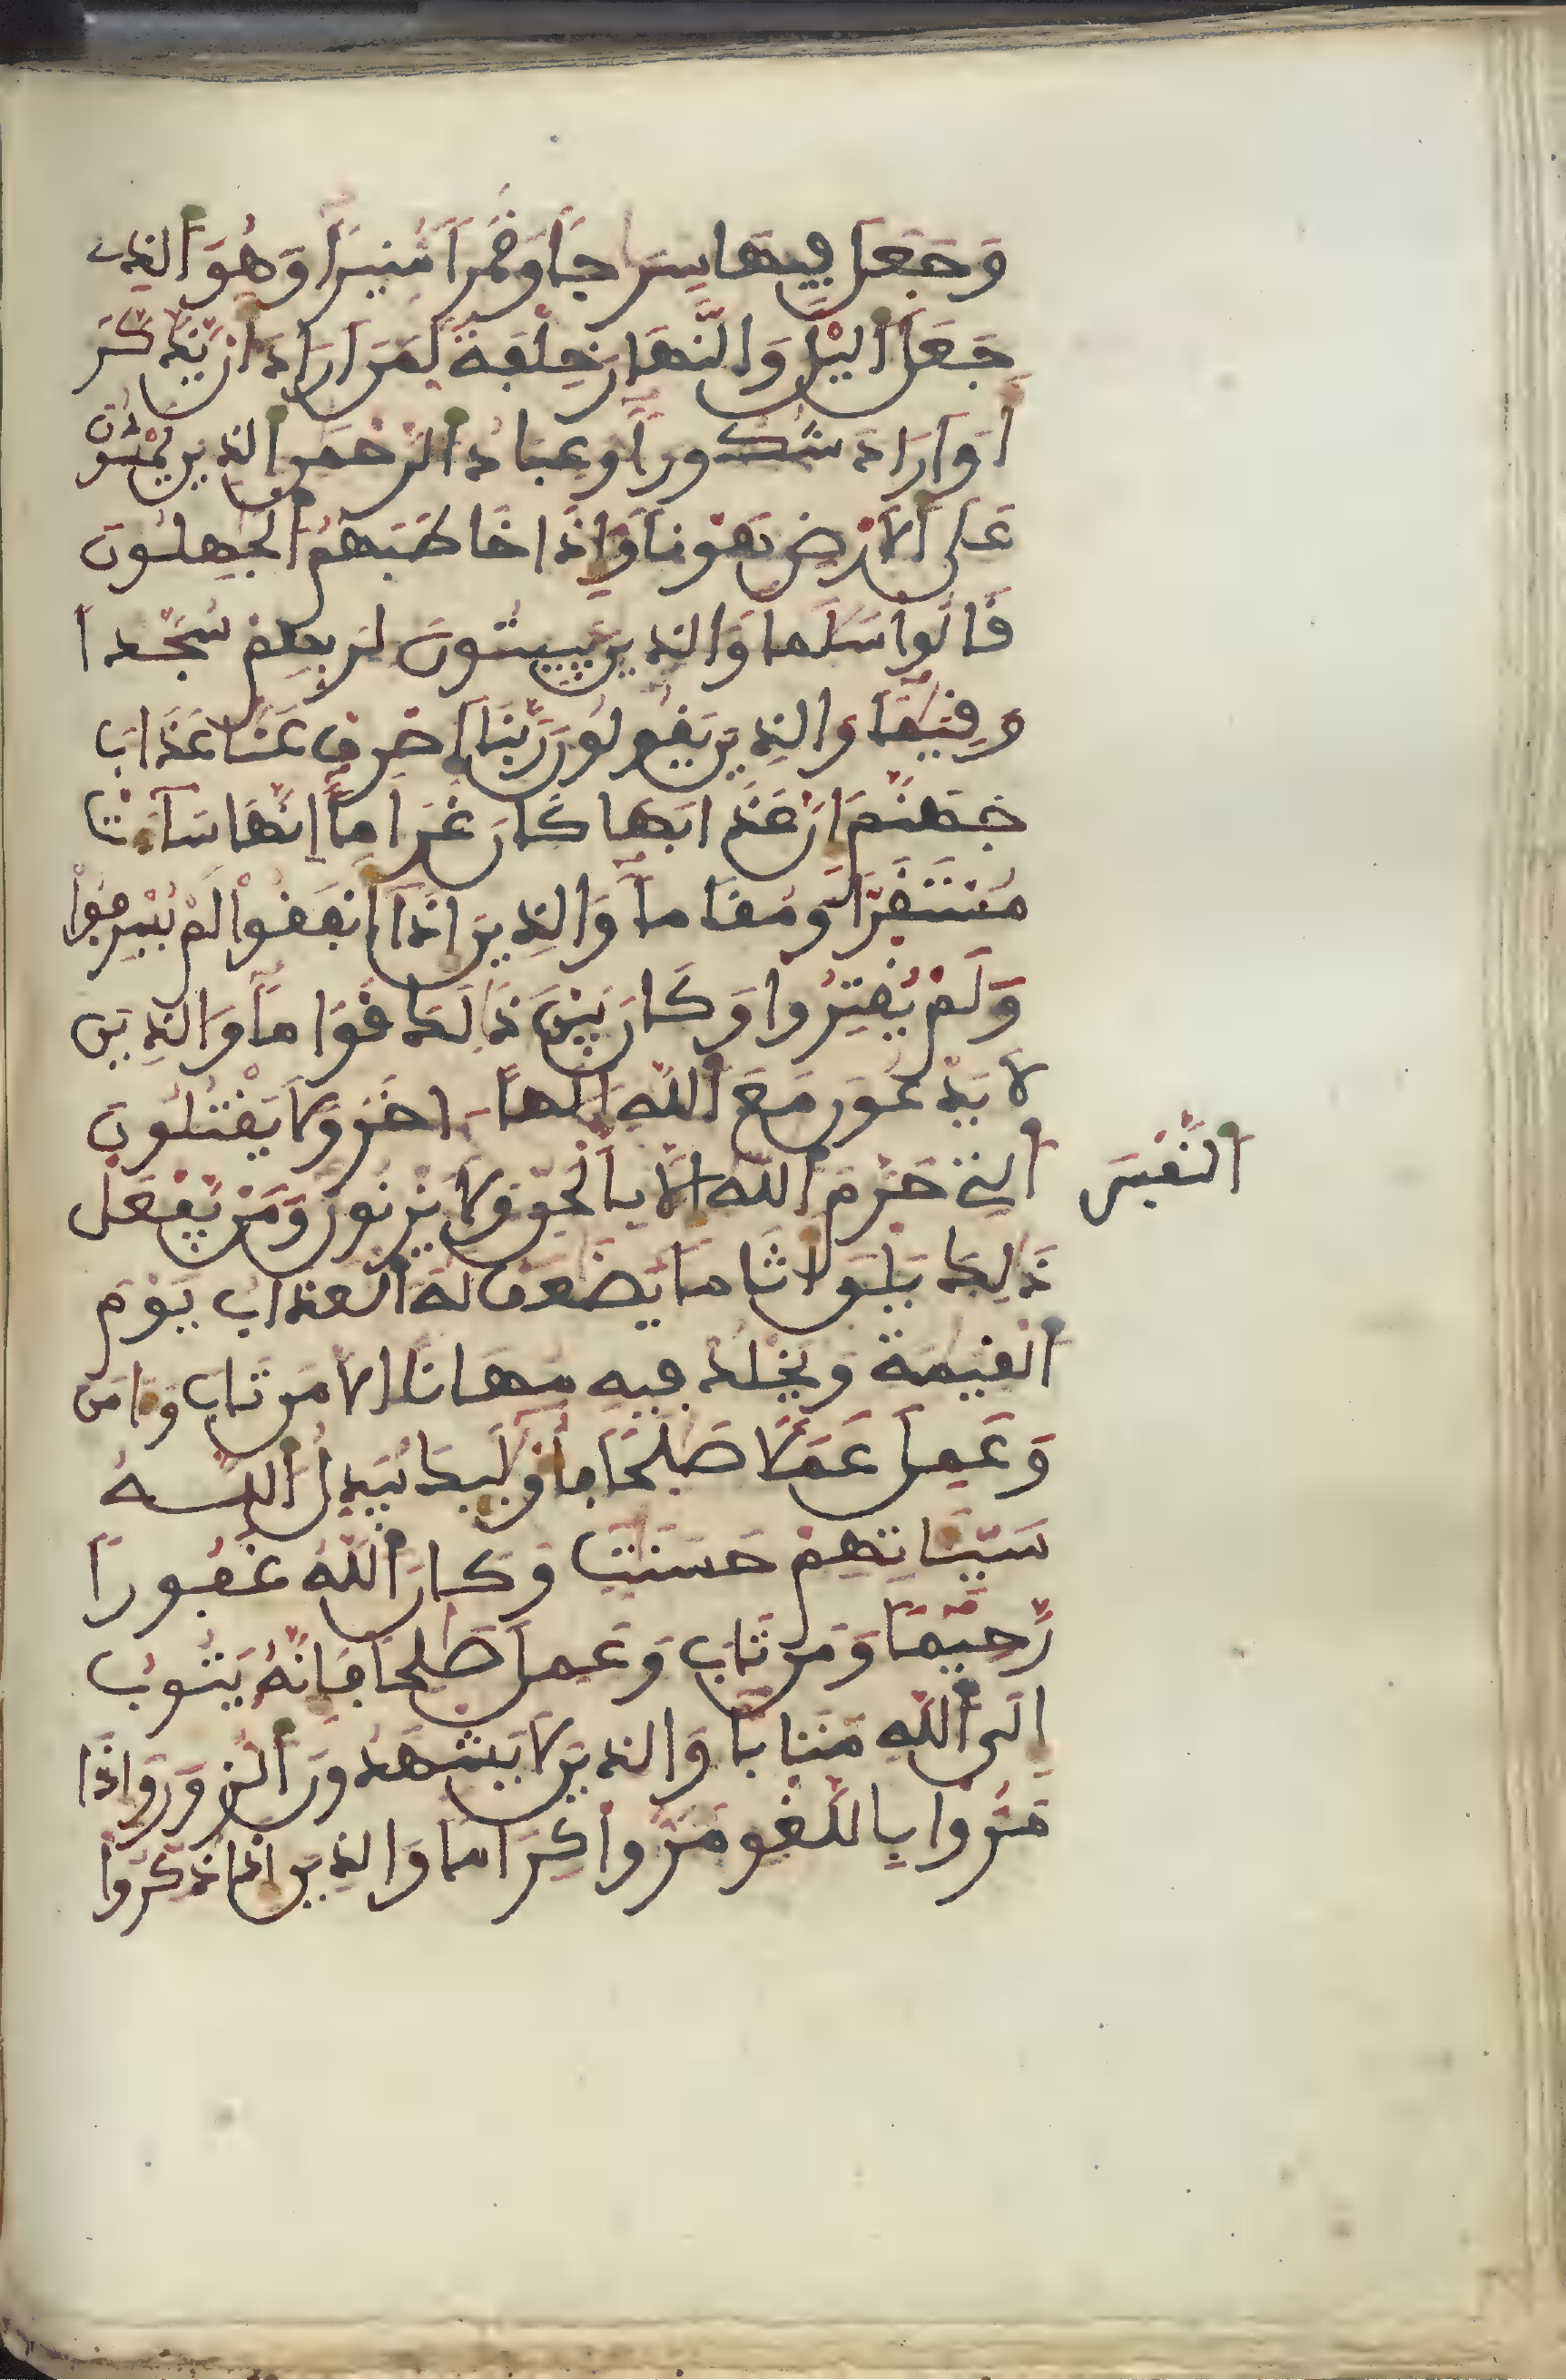 وَجَعَلَ فِيهَا سِرَٰجاً وَقَمَراً مُّنِيراً وَهُوَ ألذِے
جَعَلَ أليْلَ وَالنَّهَارَ خِلْفَةً لِّمَنَ اَرَادَ أَنْ يَّذَّكَّرَ
أَوَ اَرَادَ شُكُوراً وَعِبَادُ ألرَّحْمَٰنِ ألذِينَ يَمْشُونَ
عَلَى ألاَرْضِ هَوْناً وَإِذَا خَاطَبَهُمُ ألْجَٰهِلُونَ
قَالُواْ سَلَٰماً وَالذِينَ يَبِيتُونَ لِرَبِّهِمْ سُجَّداً
وَقِيَٰماً وَالذِينَ يَقُولُونَ رَبَّنَا اَصْرِفْ عَنَّا عَذَابَ
جَهَنَّمَ إِنَّ عَذَابَهَا كَانَ غَرَاماً إِنَّهَا سَآءَتْ
مُسْتَقَرّاً وَمُقَاماً وَالذِينَ إِذَا أَنفَقُواْ لَمْ يُسْرِفُواْ
وَلَمْ يُقْتِرُوا وَكَانَ بَيْنَ ذَٰلِكَ قَوَاماً وَالذِينَ
لاَ يَدْعُونَ مَعَ أللَّهِ إِلَٰهاً اخَرَ وَلاَ يَقْتُلُونَ
ألنَّفْسَ ألتِے حَرَّمَ أللَّهُ إِلاَّ بِالْحَقِّ وَلاَ يَزْنُونَ وَمَنْ يَّفْعَلْ
ذَٰلِكَ يَلْقَ أَثَاماً يُضَٰعَفْ لَهُ ألْعَذَابُ يَوْمَ
ألْقِيَٰمَةِ وَيَخْلُدْ فِيهِ مُهَاناً اِلاَّ مَن تَابَ وَءَامَنَ
وَعَمِلَ عَمَلاً صَٰلِحاً فَأُوْلَٰئِكَ يُبَدِّلُ أللَّهُ
سَيِّـَٔاتِهِمْ حَسَنَٰتٍ وَكَانَ أللَّهُ غَفُوراً
رَّحِيماً وَمَن تَابَ وَعَمِلَ صَٰلِحاً فَإِنَّهُ يَتُوبُ
إِلَى أللَّهِ مَتَاباً وَالذِينَ لاَ يَشْهَدُونَ ألزُّورَ وَإِذَا
مَرُّوا بِاللَّغْوِ مَرُّواْ كِرَاماً وَالذِينَ إِذَا ذُكِّرُواْ